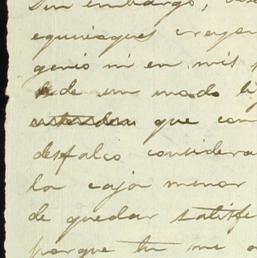 Sin embargo,
equivoques creyen
genio ni en mis
de un modo
que con
desfalco considera
la caja menor
de quedar satisfe
porque tu me